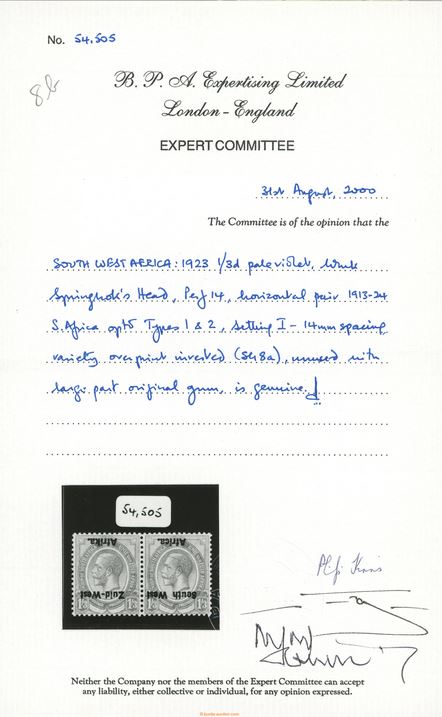 No. 54,505
8b
B. P. A. Expertising Limited
London - England
EXPERT COMMITTEE
31st August, 2000
The Committee is of the opinion that the
SOUTH WEST AFRICA: 1923 1/3d pale violet, wmk
Springbok's Head, Perf 14, horizontal pair 1913-24
S. Africa optd Types 1 & 2, Setting I - 14mm spacing
variety overprint inverted (SG 8a), unused with
large part original gum, is genuine.
54,505
Afrika. Africa.
Zuid-West South West
Neither the Company nor the members of the Expert Committee can accept
any liability, either collective or individual, for any opinion expressed.